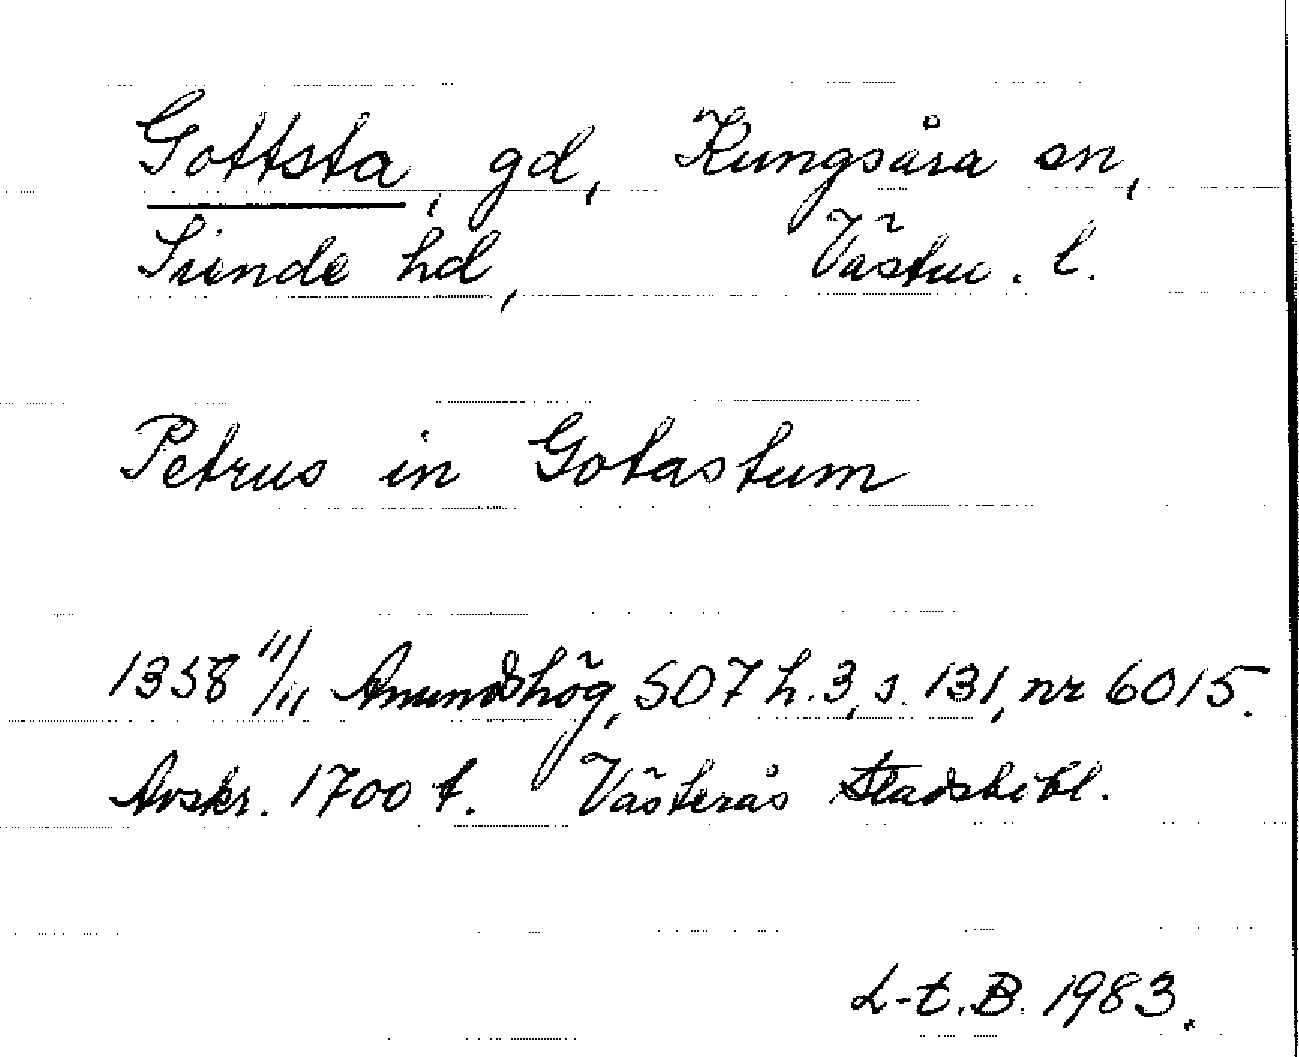 Gottsta, gd, Kungsåra sn,
Siende hd, Västm. l.
Petrus in Gotastum
1358 11/11 Anundshög, SD 7 h. 3, s. 131, nr 6015.
Avskr. 1700 t. Västerås Stadsbibl.
L-t. B. 1983.